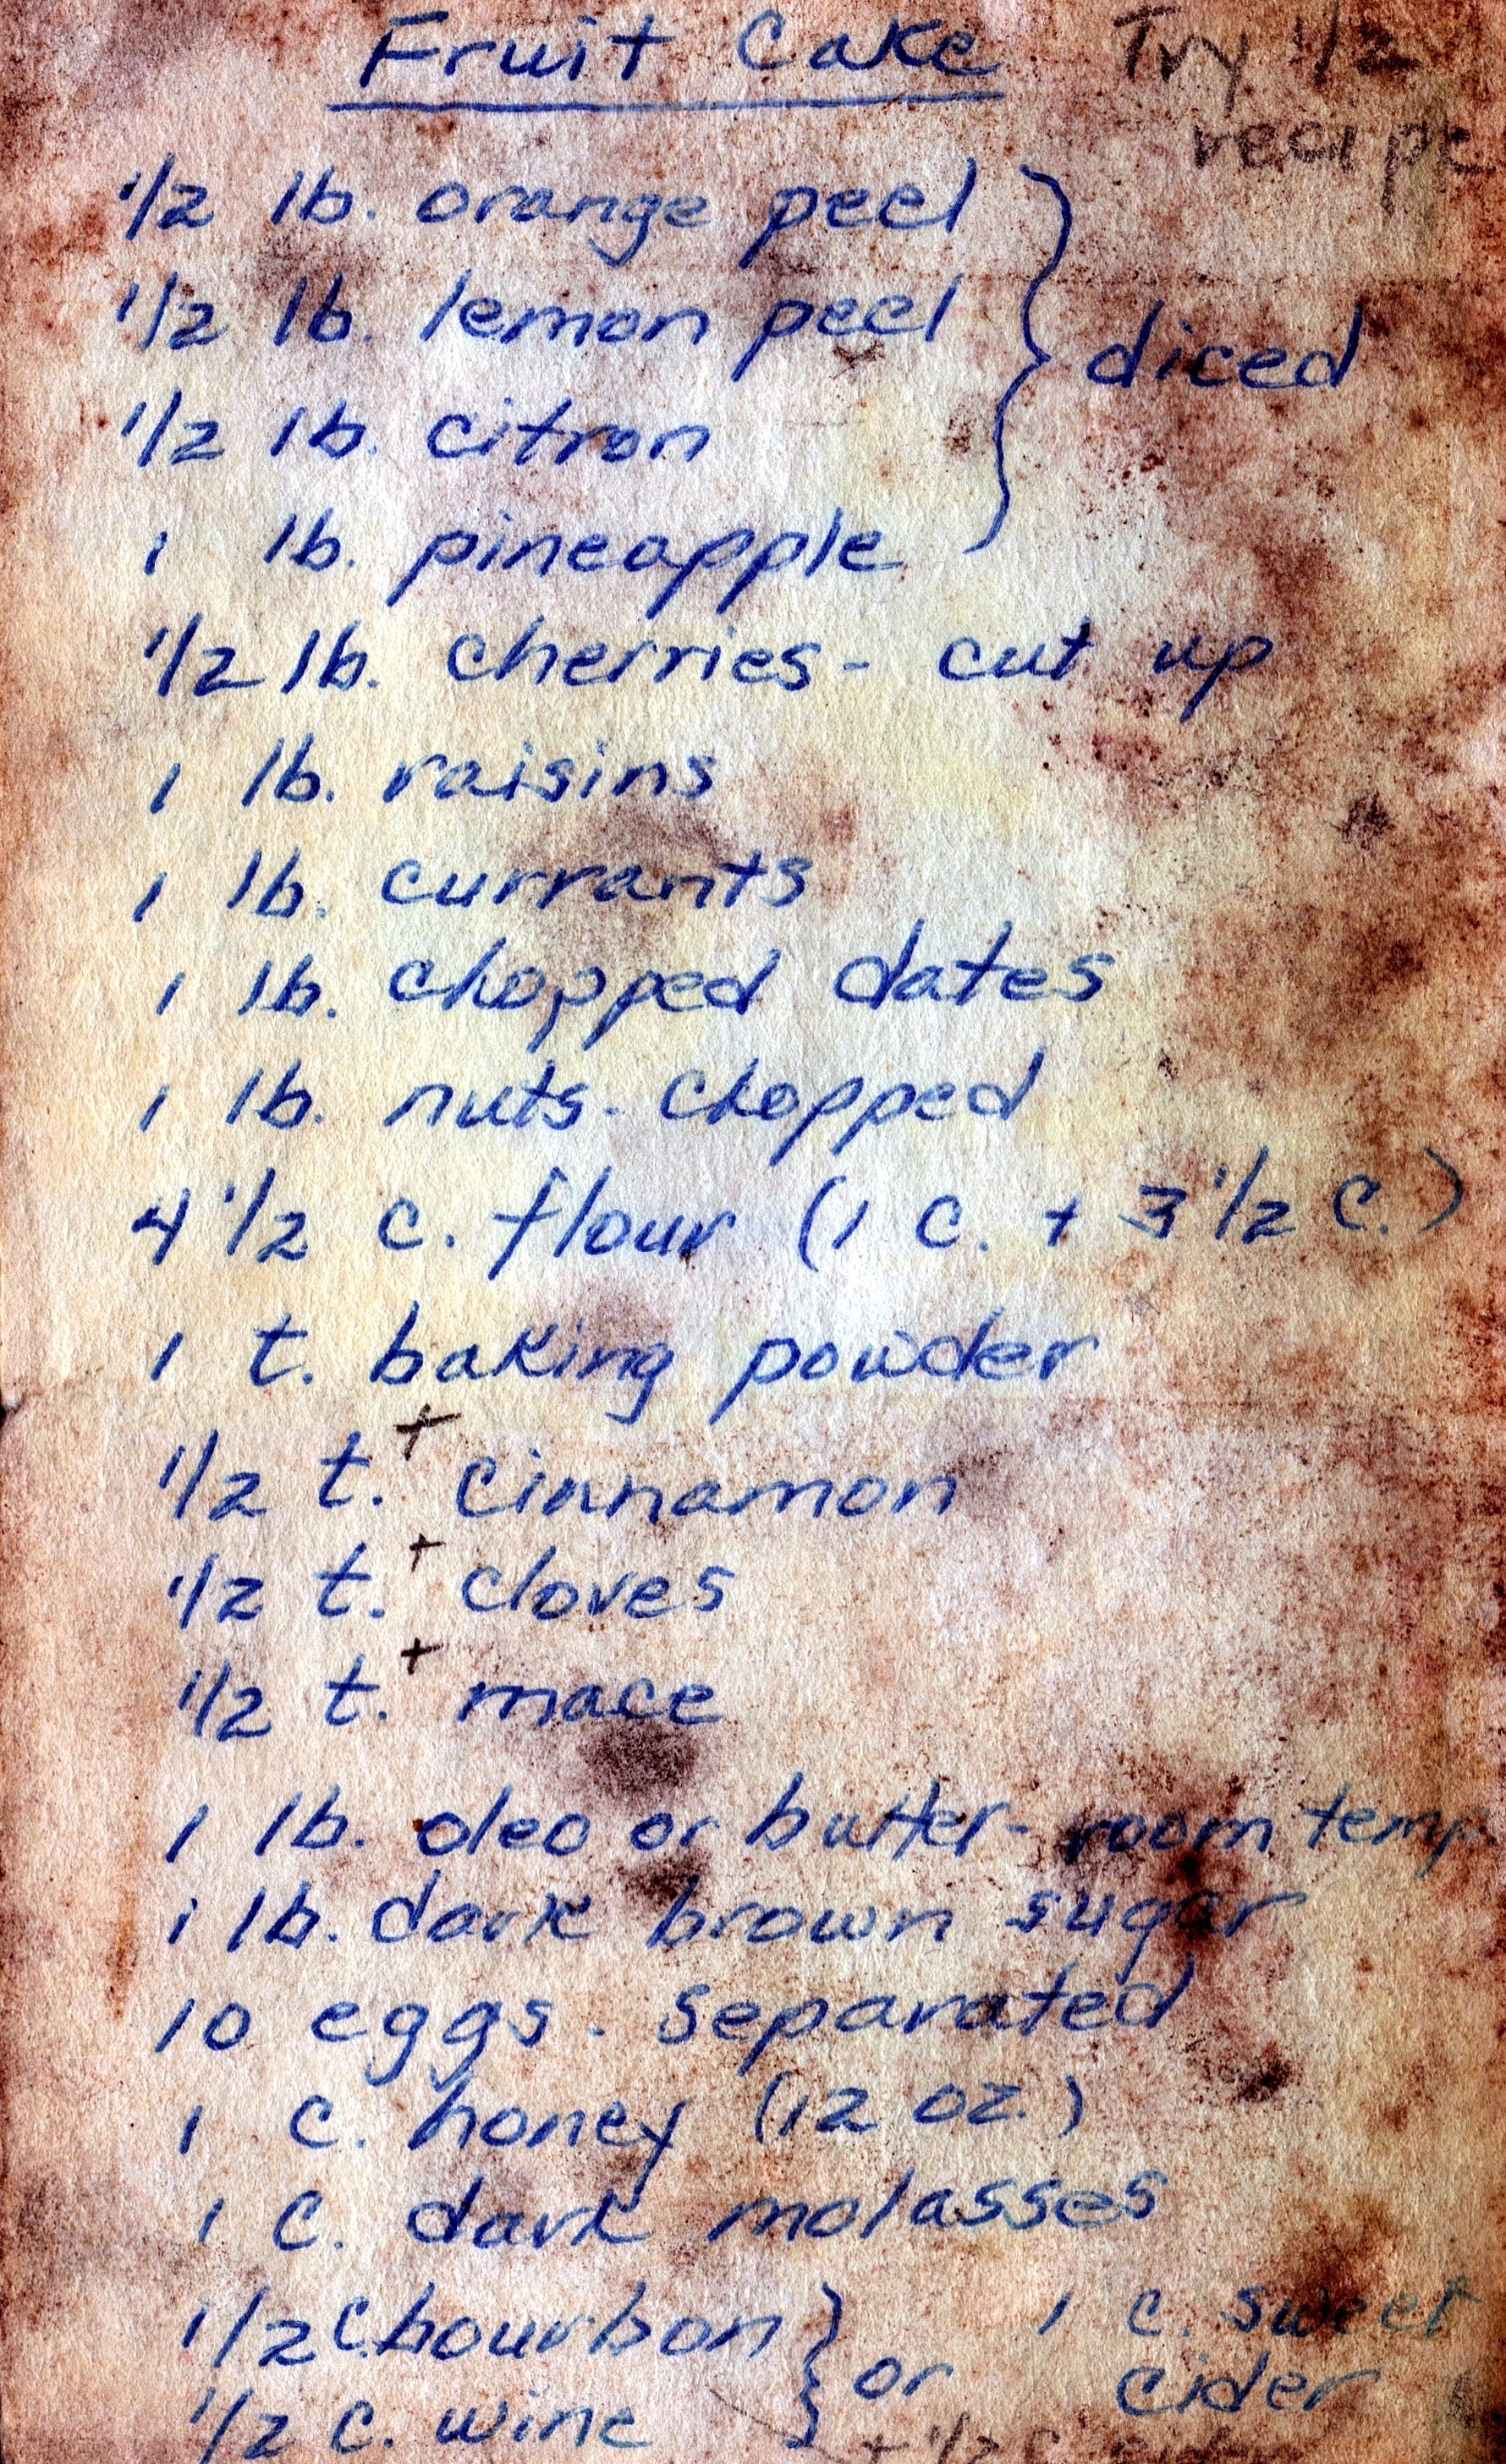 Fruit Cake Try 1/2
recipe
1/2 lb. orange peel
1/2 lb. lemon peel
diced
1/2 lb. citron
1 lb. pineapple
1/2 lb. cherries - cut up
1 lb. raisins
1 lb. currants
1 lb. chopped dates
1 lb. nuts - chopped
4 1/2 c. flour (1 c. + 3 1/2 c.)
1 t. baking powder
1/2 t. + cinnamon
1/2 t. + cloves
1/2 t. + mace
1 lb. oleo or butter - room temp
1 lb. dark brown sugar
10 eggs - separated
1 c. honey (12 oz.)
1 c. dark molasses
1/2 c. bourbon } or 1 c. sweet
1/2 c. wine cider
+ 1/2 c.